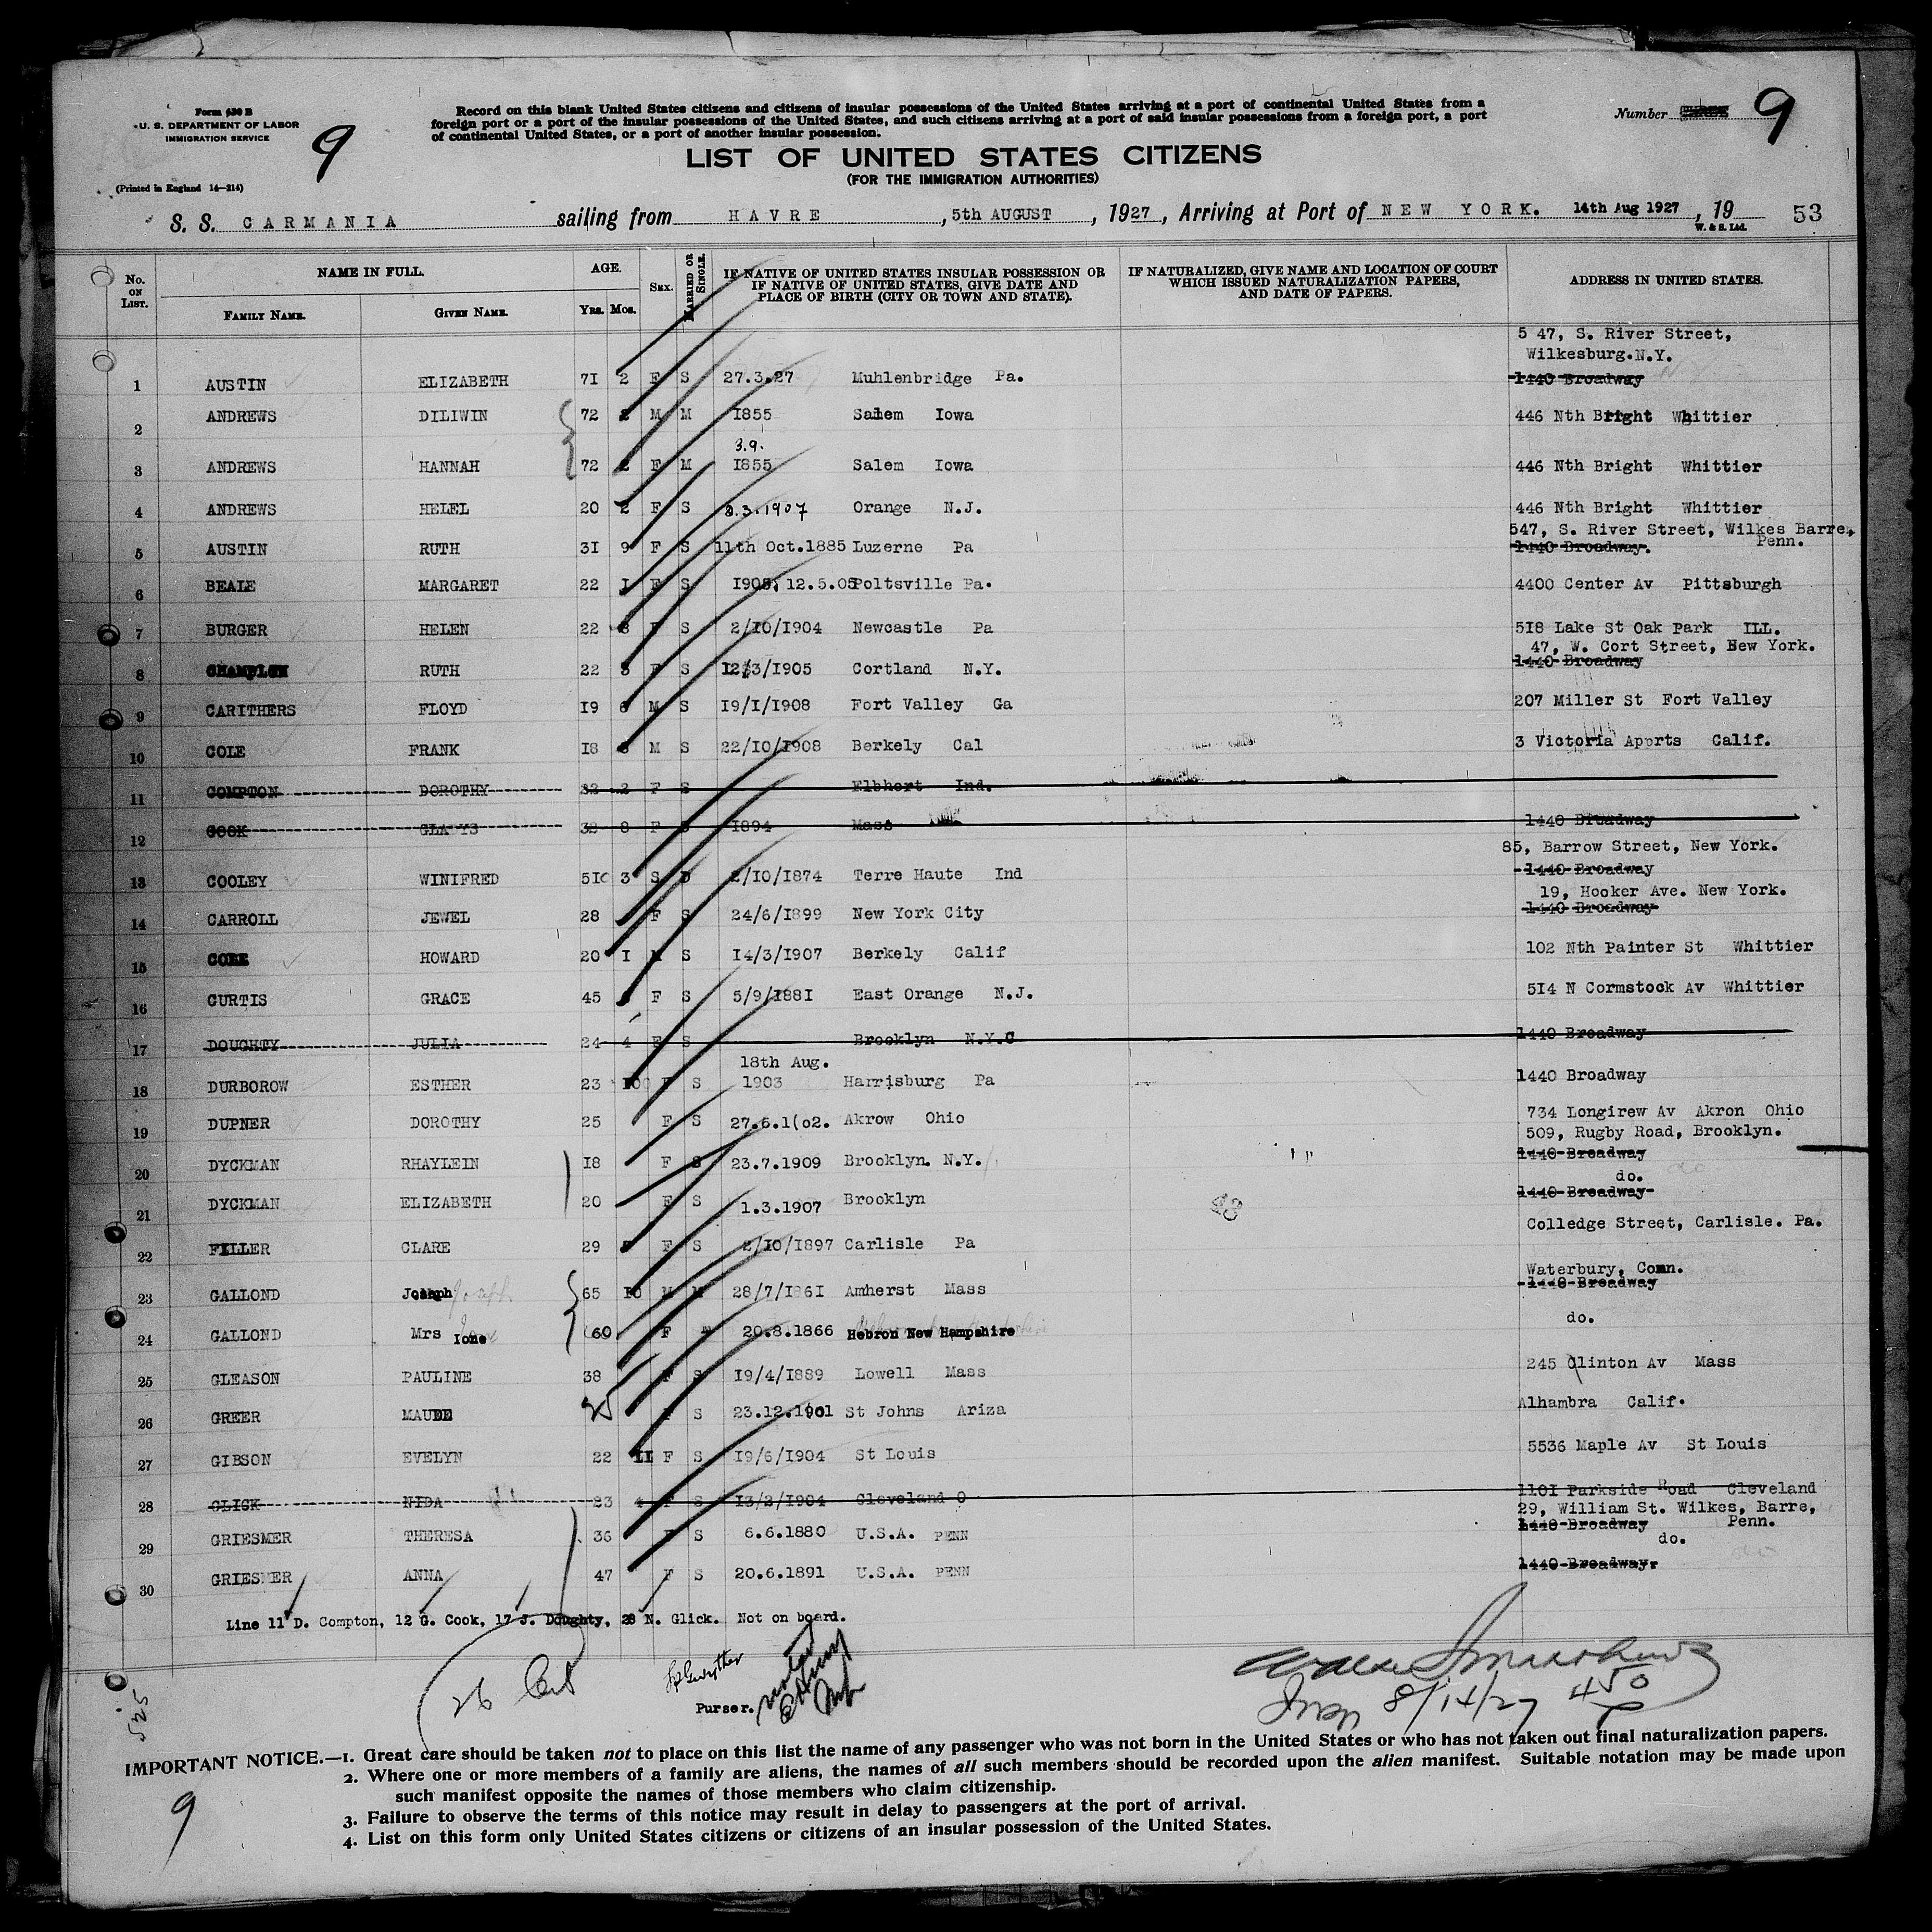 Form 630 B
U. S. DEPARTMENT OF LABOR
IMMIGRATION SERVICE
(Printed in England 14—214)
9
Record on this blank United States citizens and citizens of insular possessions of the United States arriving at a port of continental United States from a
foreign port or a port of the insular possessions of the United States, and such citizens arriving at a port of said insular possessions from a foreign port, a port
of continental United States, or a port of another insular possession.
Number 9
LIST OF UNITED STATES CITIZENS
(FOR THE IMMIGRATION AUTHORITIES)
S. S. CARMANIA sailing from HAVRE , 5th AUGUST , 1927, Arriving at Port of NEW YORK. 14th Aug 1927 , 19 53
W. & S. Ltd.
No. ON LIST. NAME IN FULL. AGE. SEX. MARRIED OR SINGLE. IF NATIVE OF UNITED STATES INSULAR POSSESSION OR IF NATIVE OF UNITED STATES, GIVE DATE AND PLACE OF BIRTH (CITY OR TOWN AND STATE). IF NATURALIZED, GIVE NAME AND LOCATION OF COURT WHICH ISSUED NATURALIZATION PAPERS, AND DATE OF PAPERS. ADDRESS IN UNITED STATES.
FAMILY NAME. GIVEN NAME. YRS. MOS.
5 47, S. River Street,
Wilkesburg.N.Y.
1 AUSTIN ELIZABETH 7I 2 F S 27.3.27 Muhlenbridge Pa. 1440 Broadway
2 ANDREWS DILIWIN 72 2 M M I855 Salem Iowa 446 Nth Bright Whittier
3.9.
3 ANDREWS HANNAH 72 2 F M I855 Salem Iowa 446 Nth Bright Whittier
4 ANDREWS HELEL 20 2 F S 3.1907 Orange N.J. 446 Nth Bright Whittier
547, S. River Street, Wilkes Barre, Penn.
5 AUSTIN RUTH 3I 9 F S 11th Oct.1885 Luzerne Pa 1440 Broadway.
6 BEALE MARGARET 22 I F S I905. 12.5.05 Poltsville Pa. 4400 Center Av Pittsburgh
7 BURGER HELEN 22 8 F S 2/I0/I904 Newcastle Pa 5I8 Lake St Oak Park ILL.
47, W. Cort Street, New York.
8 CHAMPLON RUTH 22 3 F S I2/3/I905 Cortland N.Y. 1440 Broadway
9 CARITHERS FLOYD I9 6 M S I9/I/I908 Fort Valley Ga 207 Miller St Fort Valley
10 COLE FRANK I8 M S 22/I0/I908 Berkely Cal 3 Victoria Apprts Calif.
11 COMPTON DOROTHY 2 F S Elbhort Ind.
12 COOK GLADYS 32 8 F S I894 Mass 1440 Broadway
85, Barrow Street, New York.
13 COOLEY WINIFRED 3 S D 2/I0/I874 Terre Haute Ind 1440 Broadway
19, Hooker Ave. New York.
14 CARROLL JEWEL 28 F S 24/6/I899 New York City 1440 Broadway
15 HOWARD 20 I M S I4/3/I907 Berkely Calif I02 Nth Painter St Whittier
16 CURTIS GRACE 45 F S 5/9/I88I East Orange N.J. 5I4 N Cormstock Av Whittier
17 DOUGHTY JULIA 24 4 F S Brooklyn N.Y.C 1440 Broadway
18th Aug.
18 DURBOROW ESTHER 23 F S 1903 Harrisburg Pa 1440 Broadway
19 DUPNER DOROTHY 25 F S 27.6.1(02. Akrow Ohio 734 Longirew Av Akron Ohio
509, Rugby Road, Brooklyn.
20 DYCKMAN RHAYLEIN I8 F S 23.7.1909 Brooklyn. N.Y. 1440 Broadway
do.
21 DYCKMAN ELIZABETH 20 F S 1.3.1907 Brooklyn 1440 Broadway
Colledge Street, Carlisle. Pa.
22 FILLER CLARE 29 F S 2/I0/I897 Carlisle Pa
Waterbury, Conn.
23 GALLOND Joseph 65 I0 M M 28/7/I86I Amherst Mass 1440 Broadway
24 GALLOND Mrs Ione 60 F M 20.8.1866 Hebron New Hampshire do.
25 GLEASON PAULINE 38 F S I9/4/I889 Lowell Mass 245 Clinton Av Mass
26 GREER MAUDE 25 F S 23.12.1901 St Johns Ariza Alhambra Calif.
27 GIBSON EVELYN 22 II F S I9/6/I904 St Louis 5536 Maple Av St Louis
28 GLICK NIDA 23 F S I3/2/I904 Cleveland O II0I Parkside Road Cleveland
29, William St. Wilkes, Barre, Penn.
29 GRIESMER THERESA 36 F S 6.6.1880 U.S.A. PENN 1440 Broadway
do.
30 GRIESMER ANNA 47 F S 20.6.1891 U.S.A. PENN 1440 Broadway.
Line 11 D. Compton, 12 G. Cook, 17 J. Doughty, 28 N. Glick. Not on board.
26 Cit
Purser.
Insp 8/14/27 450 P
525
IMPORTANT NOTICE.—1. Great care should be taken not to place on this list the name of any passenger who was not born in the United States or who has not taken out final naturalization papers.
2. Where one or more members of a family are aliens, the names of all such members should be recorded upon the alien manifest. Suitable notation may be made upon
such manifest opposite the names of those members who claim citizenship.
3. Failure to observe the terms of this notice may result in delay to passengers at the port of arrival.
4. List on this form only United States citizens or citizens of an insular possession of the United States.
9